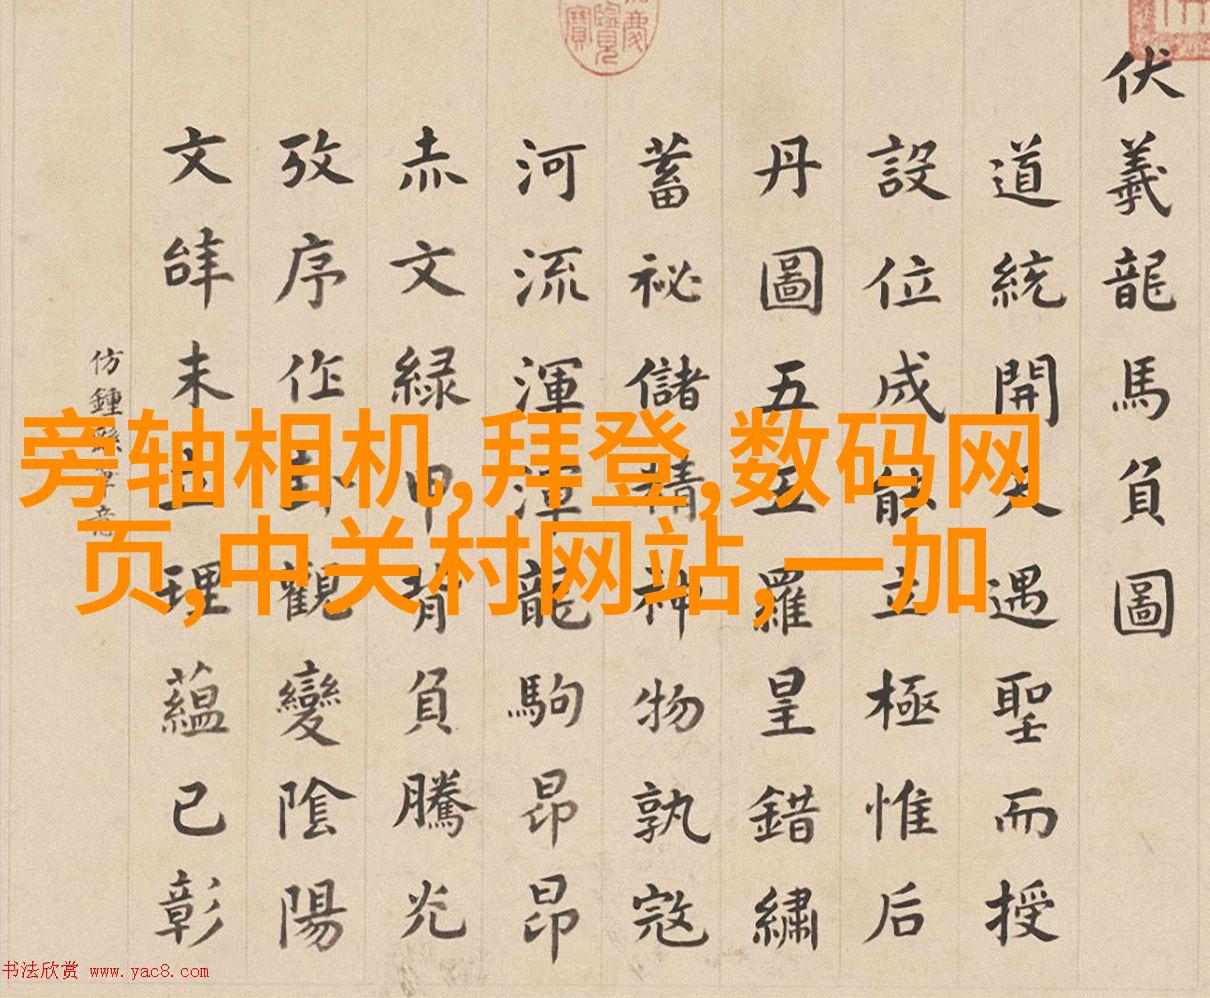 伏羲龍馬負圖
道統開天遇聖而授
設位成能立極惟后
丹圖五五羅皇錯繡
蓄祕儲精神物孰寇
河流渾渾龍駒昂昂
赤文緑甲背負騰光
攷序作卦觀變陰陽
文辞未立理蘊已彰
仿鍾繇字意
旁轴相机,拜登,数码网
页,中关村网站,一加
书法欣赏 www.yac8.com